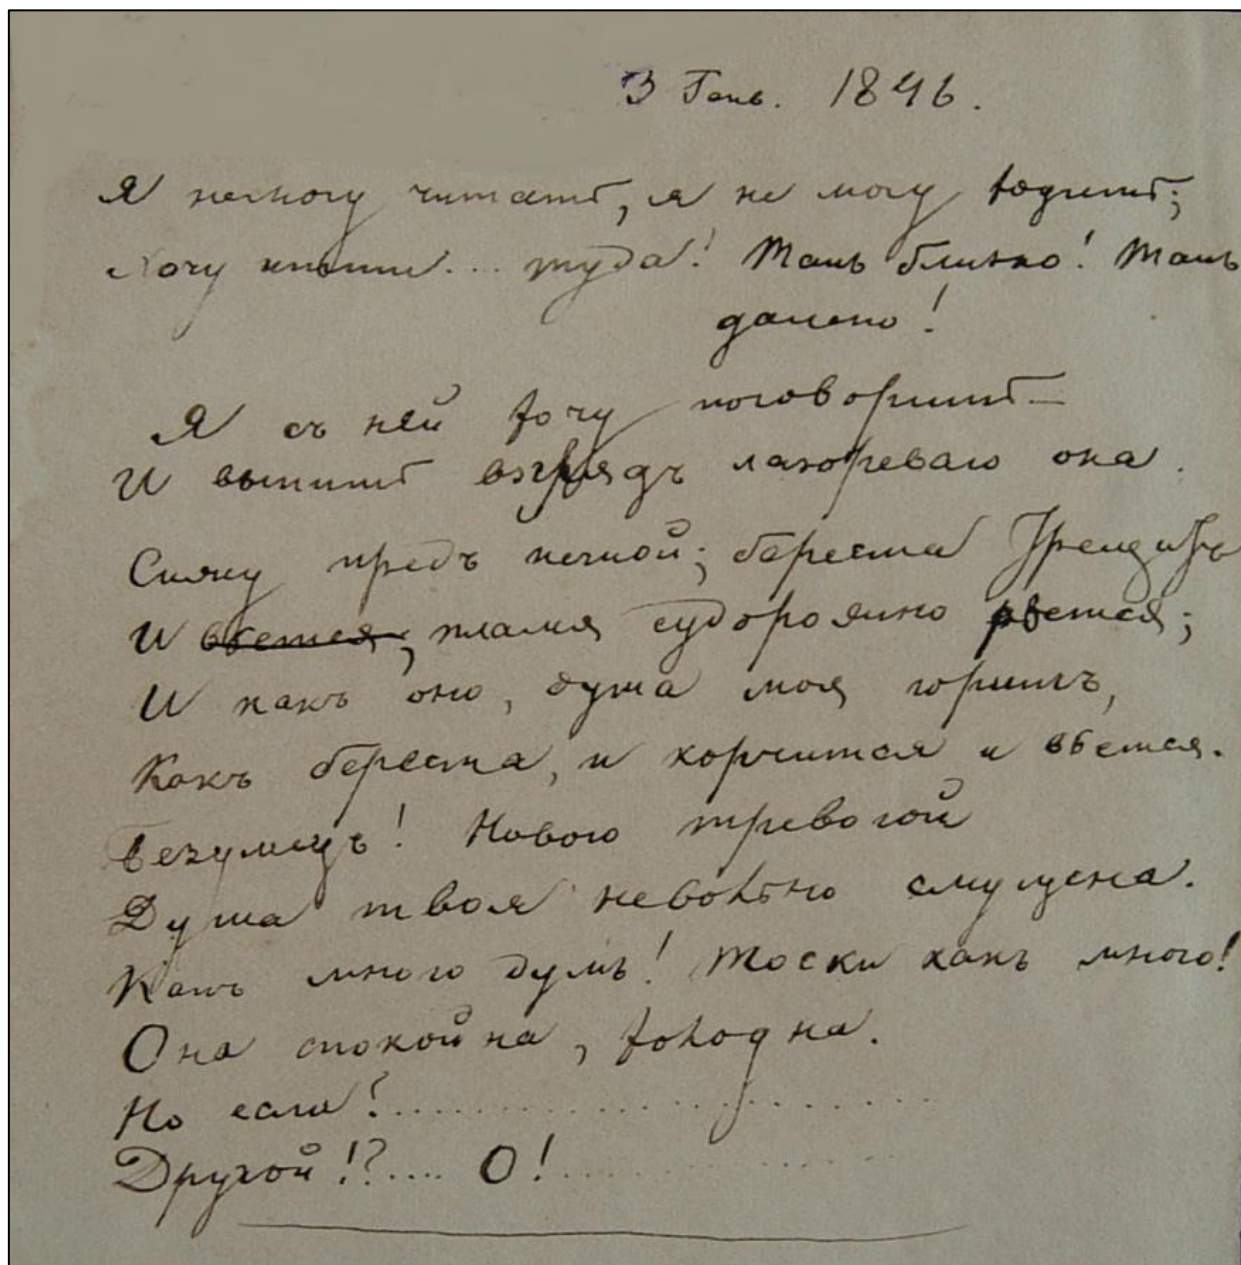 3 Генв. 1846.
Я не могу читать, я не могу ходить;
Хочу идти... туда! Такъ близко! Такъ
далеко!
Я съ ней хочу поговорить —
И выпить взглядъ лазореваго ока.
Сижу предъ печкой; береста трещитъ
И вьется, пламя судорожно рвется;
И какъ оно, душа моя горитъ,
Какъ береста, и корчится и вьется.
Безумецъ! Новою тревогой
Душа твоя невольно смущена.
Какъ много думъ! Тоски какъ много!
Она спокойна, холодна.
Но если?...........................
Другой!?.... О!...............